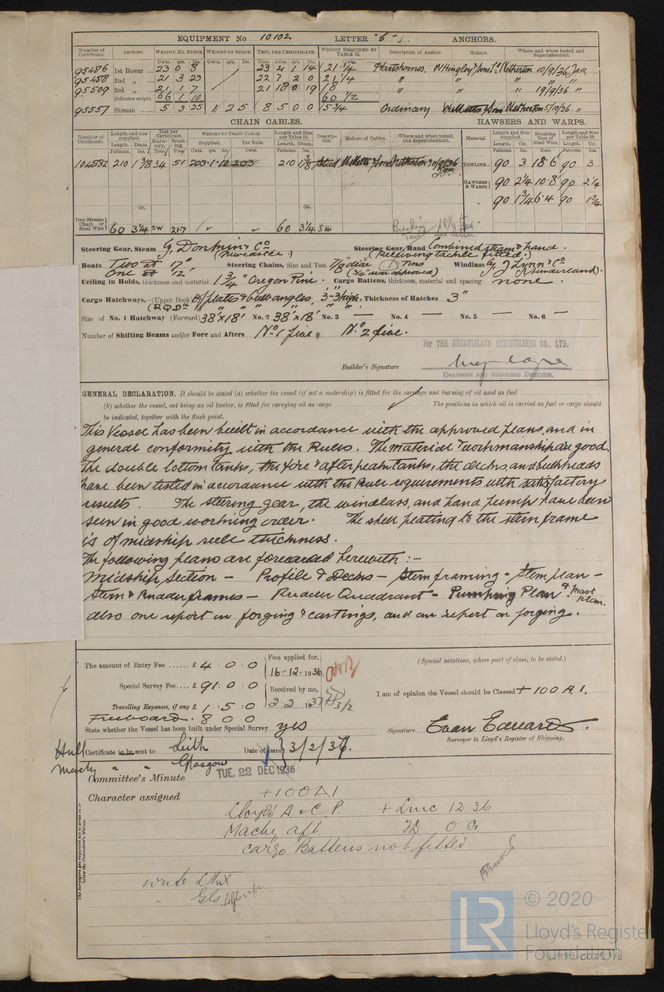 EQUIPMENT No 10102 LETTER "b" ANCHORS.
Number of Certificate. Anchors. WEIGHT, EX. STOCK. WEIGHT OF STOCK. TEST, PER CERTIFICATE. WEIGHT REQUIRED BY TABLE 53. Description of Anchor. Makers. Where and when tested and Superintendent.
95486 1st Bower 23 0 8 23 4 1 14 21 1/4 W. Hingley & Sons Ld Netherton 10/9/36
95488 2nd " 21 3 23 22 7 2 0 21 1/4 " " "
95509 3rd " 21 1 7 21 18 0 19 18 " " 19/9/36 "
Collective weight. 66 1 10 60 1/2
95557 Stream 5 3 25 1 2 5 8 5 0 0 5 3/4 Ordinary Netherton 5/10/36 "
CHAIN CABLES. HAWSERS AND WARPS.
Number of Certificate. Length and size supplied. Test per Certificate. WEIGHT OF CHAIN CABLE. Length and size per Table 53. Description. Makers of Cables. Where and when tested, and Superintendent. Material Length and size supplied. Breaking Test of Steel Wire. Length and size per Table 53.
104582 210 1 3/8 34 51 203-1-10 203 210 1 3/8 Stud Netherton TOWLINE 90 3 18·6 90 3
HAWSERS & WARPS 90 2 1/4 10·8 90 2 1/4
" 90 1 3/4 6·4 90 1 3/4
Iron Stream Chain or Steel Wire 60 3 1/4 SW 21·7 " " 60 3 1/4 SW
Steering Gear, Steam G Donkin & Co (Newcastle) Steering Gear, Hand Combined steam & hand. (Relieving tackle fitted.)
Boats Two at 17' One at 12' Steering Chains, Size and Test 7/8 dia Windlass G. J. Lynn & Co (Sunderland).
Ceiling in Holds, thickness and material 1 3/4" Oregon Pine. Cargo Battens, thickness, material and spacing none.
Cargo Hatchways.—(Upper Deck) of plates & bulb angles, 3'-3" high. Thickness of Hatches 3"
(R Q Dk) " " " "
Size of No. 1 Hatchway (Forward) 38' x 18' No. 2 38' x 18' No. 3 — No. 4 — No. 5 — No. 6 —
Number of Shifting Beams and/or Fore and Afters No 1 five. No 2 five.
For THE BURNTISLAND SHIPBUILDING CO., LTD.
Builder's Signature
CHAIRMAN AND MANAGING DIRECTOR.
GENERAL DECLARATION. It should be stated (a) whether the vessel (if not a motorship) is fitted for the carriage and burning of oil used as fuel
(b) whether the vessel, not being an oil tanker, is fitted for carrying oil as cargo The positions in which oil is carried as fuel or cargo should
be indicated, together with the flash point.
This Vessel has been built in accordance with the approved plans, and in
general conformity with the Rules. The material & workmanship are good.
The double bottom tanks, the fore & after peak tanks, the decks, and bulkheads
have been tested in accordance with the Rule requirements with satisfactory
results. The steering gear, the windlass, and hand pump have been
seen in good working order. The shell plating to the stern frame
is of midship rule thickness.
The following plans are forwarded herewith :-
Midship Section — Profile & Decks — Stern framing — Stem plan —
Stern & Rudder frames — Rudder Quadrant — Pumping Plan & Mast plan.
also one report on forging & castings, and one report on forging.
The amount of Entry Fee ..... £ 4 : 0 : 0 Fees applied for, 16-12-1936. (Special notations, where part of class, to be stated.)
Special Survey Fee .... £ 91 : 0 : 0 Received by me, I am of opinion the Vessel should be Classed + 100 A1.
Travelling Expenses, if any £ 1 : 5 : 0 2 2 1937
Freeboard. 8 0 0
State whether the Vessel has been built under Special Survey yes Signature Evan Edwards.
Surveyor to Lloyd's Register of Shipping.
Hull Certificate to be sent to Leith Date of issue 3/2/37.
Machy " " Glasgow
TUE. 22 DEC 1936
Committee's Minute
Character assigned +100A1
Lloyd's A & C P. + LMC 12.36
Machy aft. O G
Cargo Battens not fitted
write
Gls
© 2020
LR
Lloyd's Register
Foundation